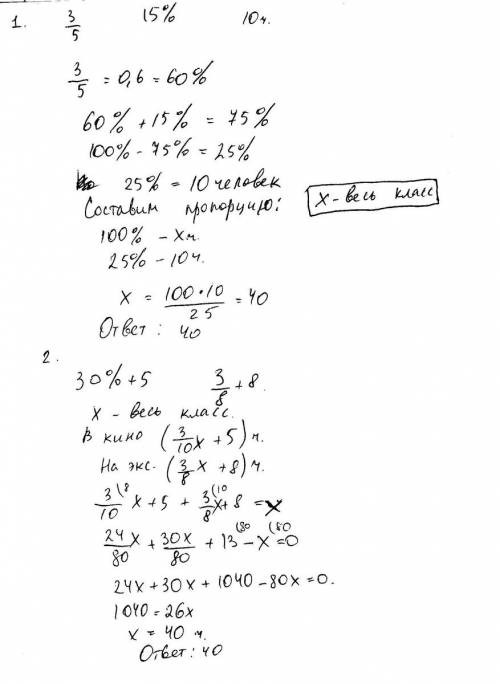 1. 3/5 15% 10ч.
3/5 = 0,6 = 60%
60% + 15% = 75%
100% - 75% = 25%
25% = 10 человек
Составим пропорцию: X - весь класс
100% - Xч.
25% - 10ч.
X = 100•10/25 = 40
Ответ: 40
2.
30% + 5 3/8 + 8.
X - весь класс.
В кино (3/10x + 5)ч.
На экс. (3/8x + 8)ч.
3(8/10 x + 5 + 3(10/8x + 8 = x
24x/80 + 30x/80 + 13(80 - x(80 = 0
24x + 30x + 1040 - 80x = 0.
1040 = 26x
x = 40 ч.
Ответ: 40